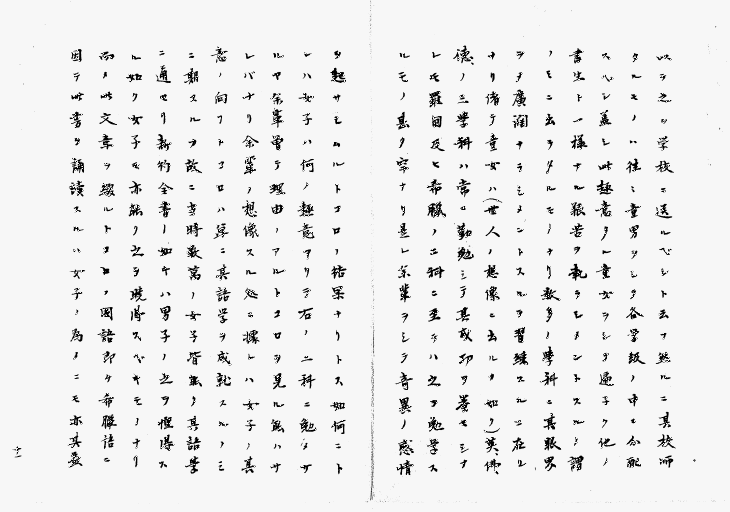 以テ之ヲ学校ニ送ルベシト云フ然ルニ其校師
タルモノハ往々童男ヲシテ各学級ノ中ニ分配
スベシ蓋シ此趣意タル童女ヲシテ遍子ク他ノ
書生ト一様ナル艱苦ヲ執ラシメントスルノ謂
ノミニ出ヲタルモノナリ数多ノ学科ニ其眼界
ヲヲ廣濶ナラシメントスルヲ習練スルニ在ル
ナリ偖テ童女ハ(世人ノ想像ニ出ルタ如ク)英佛
徳ノ三学科ハ常ニ勤勉シテ其成功ヲ蓄セシナ
レモ羅甸及ヒ希臘ノ二科ニ至テハ之ヲ勉学ス
ルモノ甚タ罕ナリ是レ余輩ヲシテ奇異ノ感情
ヲ起サシムルトコロノ結果ナリトス如何ニト
レハ女子ハ何ノ趣意アリテ右ノ二科ニ勉メサ
ルヤ余輩曽テ理由ノアルトコロヲ見ル能ハサ
レバナリ余輩ノ想像スル処ニ據レハ女子ノ其
意ノ向フトコロハ第ニ其語学ヲ成就スルノミ
ニ期スルヲ故ニ当時数萬ノ女子皆能ク其語学
ニ通セリ新約全書ノ如キハ男子ノ之ヲ惺得ス
ル如ク女子モ亦能ク之ヲ暁得スベキモノナリ
而〆此文章ヲ綴ルトコロノ國語即ケ希臘語ニ
因テ此書ヲ誦讀スルハ女子ノ為メニモ亦其益
十一